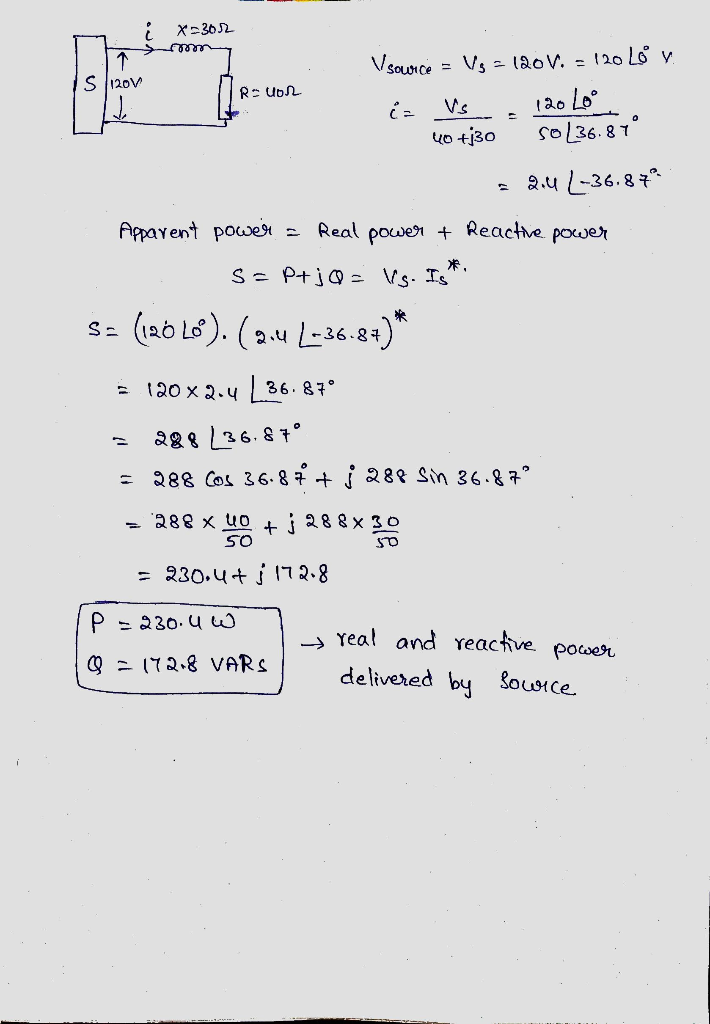 i X=30Ω
S 120V R=40Ω
Vsource = Vs = 120V. = 120∠0° V
i = Vs / (40+j30) = 120∠0° / 50∠36.87°
= 2.4 ∠-36.87°
Apparent power = Real power + Reactive power
S = P+jQ = Vs. Is*.
S = (120∠0°). (2.4 ∠-36.87)*
= 120 x 2.4 ∠36.87°
= 288 ∠36.87°
= 288 Cos 36.87° + j 288 Sin 36.87°
= 288 x 40/50 + j 288 x 30/50
= 230.4 + j 172.8
P = 230.4 W
Q = 172.8 VARs
→ real and reactive power
delivered by Source